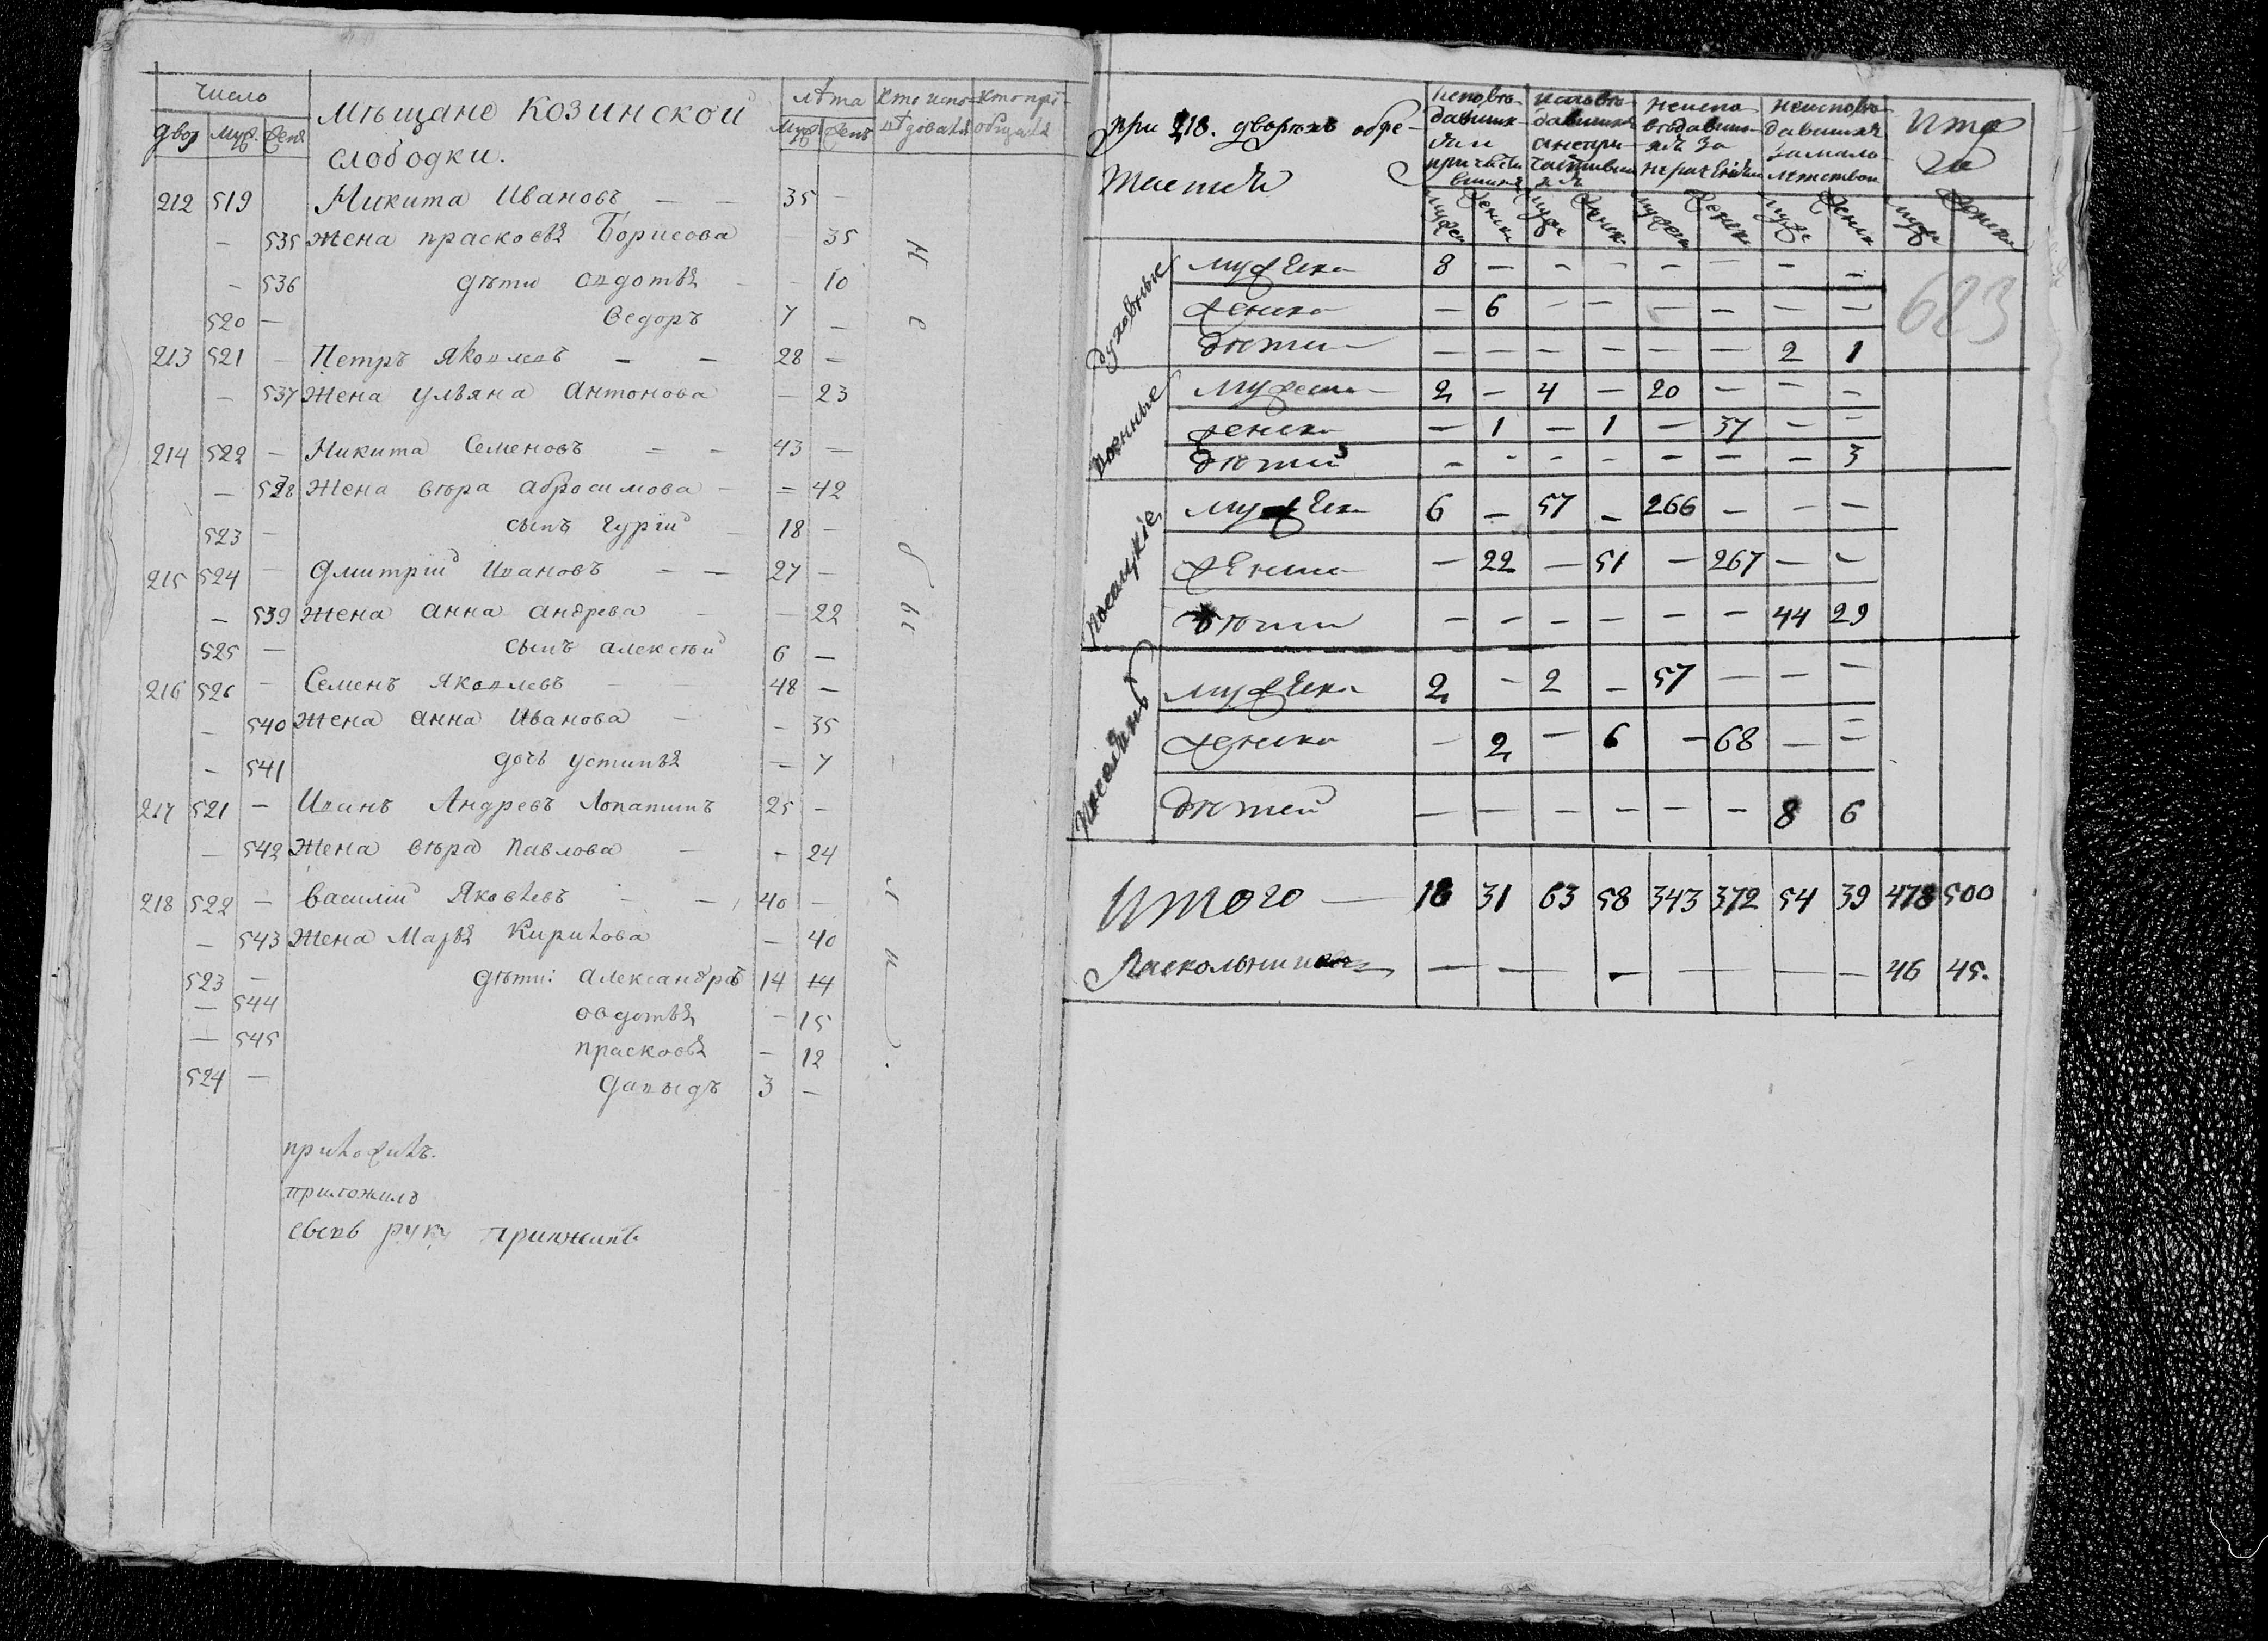 число
двор муж. жен.
Мѣщане Козинской
слободки.
лѣта
муж женъ
кто испо-
вѣдовался
кто прі-
общался
212 519 Никита Ивановъ — — 35 —
— 535 Жена праскосья Борисова 35
— 536 дѣти овдотья — — 10
520 — Ѳедоръ 7 —
213 521 — Петръ Яковлевъ — — 28 —
— 537 Жена ульяна Антонова — 23
214 522 — Никита Семеновъ — — 43 —
— 538 Жена вѣра абросимова — — 42
523 — сынъ Гурій — 18 —
215 524 — Дмитрій Ивановъ — — 27 —
— 539 Жена анна андрева — — 22
525 — сынъ алексѣй 6 —
216 526 — Семенъ Яковлевъ — — 48 —
— 540 Жена анна Иванова — — 35
— 541 дочь устинья — 7
217 521 — Иванъ Андревъ Лопатинъ 25 —
— 542 Жена вѣра Павлова — — 24
218 522 — Василій Яковлевъ — — 40 —
— 543 Жена Марья Кирилова — 40
523 — дѣти: александръ 14 14
— 544 овдотья — 15
— 545 прасковья — 12
524 — давыдъ 3 —
не были.
приложилъ
руку приложилъ
при 218. дворѣхъ обре-
тается
исповѣ-
давших-
ся и
причасти
вшихся
исповѣ-
давшихся
а непри-
частивши
хся
неиспо-
вѣдавши-
хся за
нераченіем
неисповѣ-
давшихся
за мало-
летством
итого
муж женск муж женск мужеск женск муж женск муж женск
623
духовные
мужеска 8 — — — — — — —
женска — 6 — — — — — —
дѣтей — — — — — — 2 1
военные
мужеска 2 — 4 — 20 — — —
женска — 1 — 1 — 37 — —
дѣтей — — — — — — — 3
посацкіе
мужеска 6 — 57 — 266 — — —
женска — 22 — 51 — 267 — —
дѣтей — — — — — — 44 29
мужеска 2 — 2 — 57 — — —
женска — 2 — 6 — 68 — —
дѣтей — — — — — — 8 6
Итого — 18 31 63 58 343 372 54 39 478 500
Раскольниковъ — — — — — — 46 45.